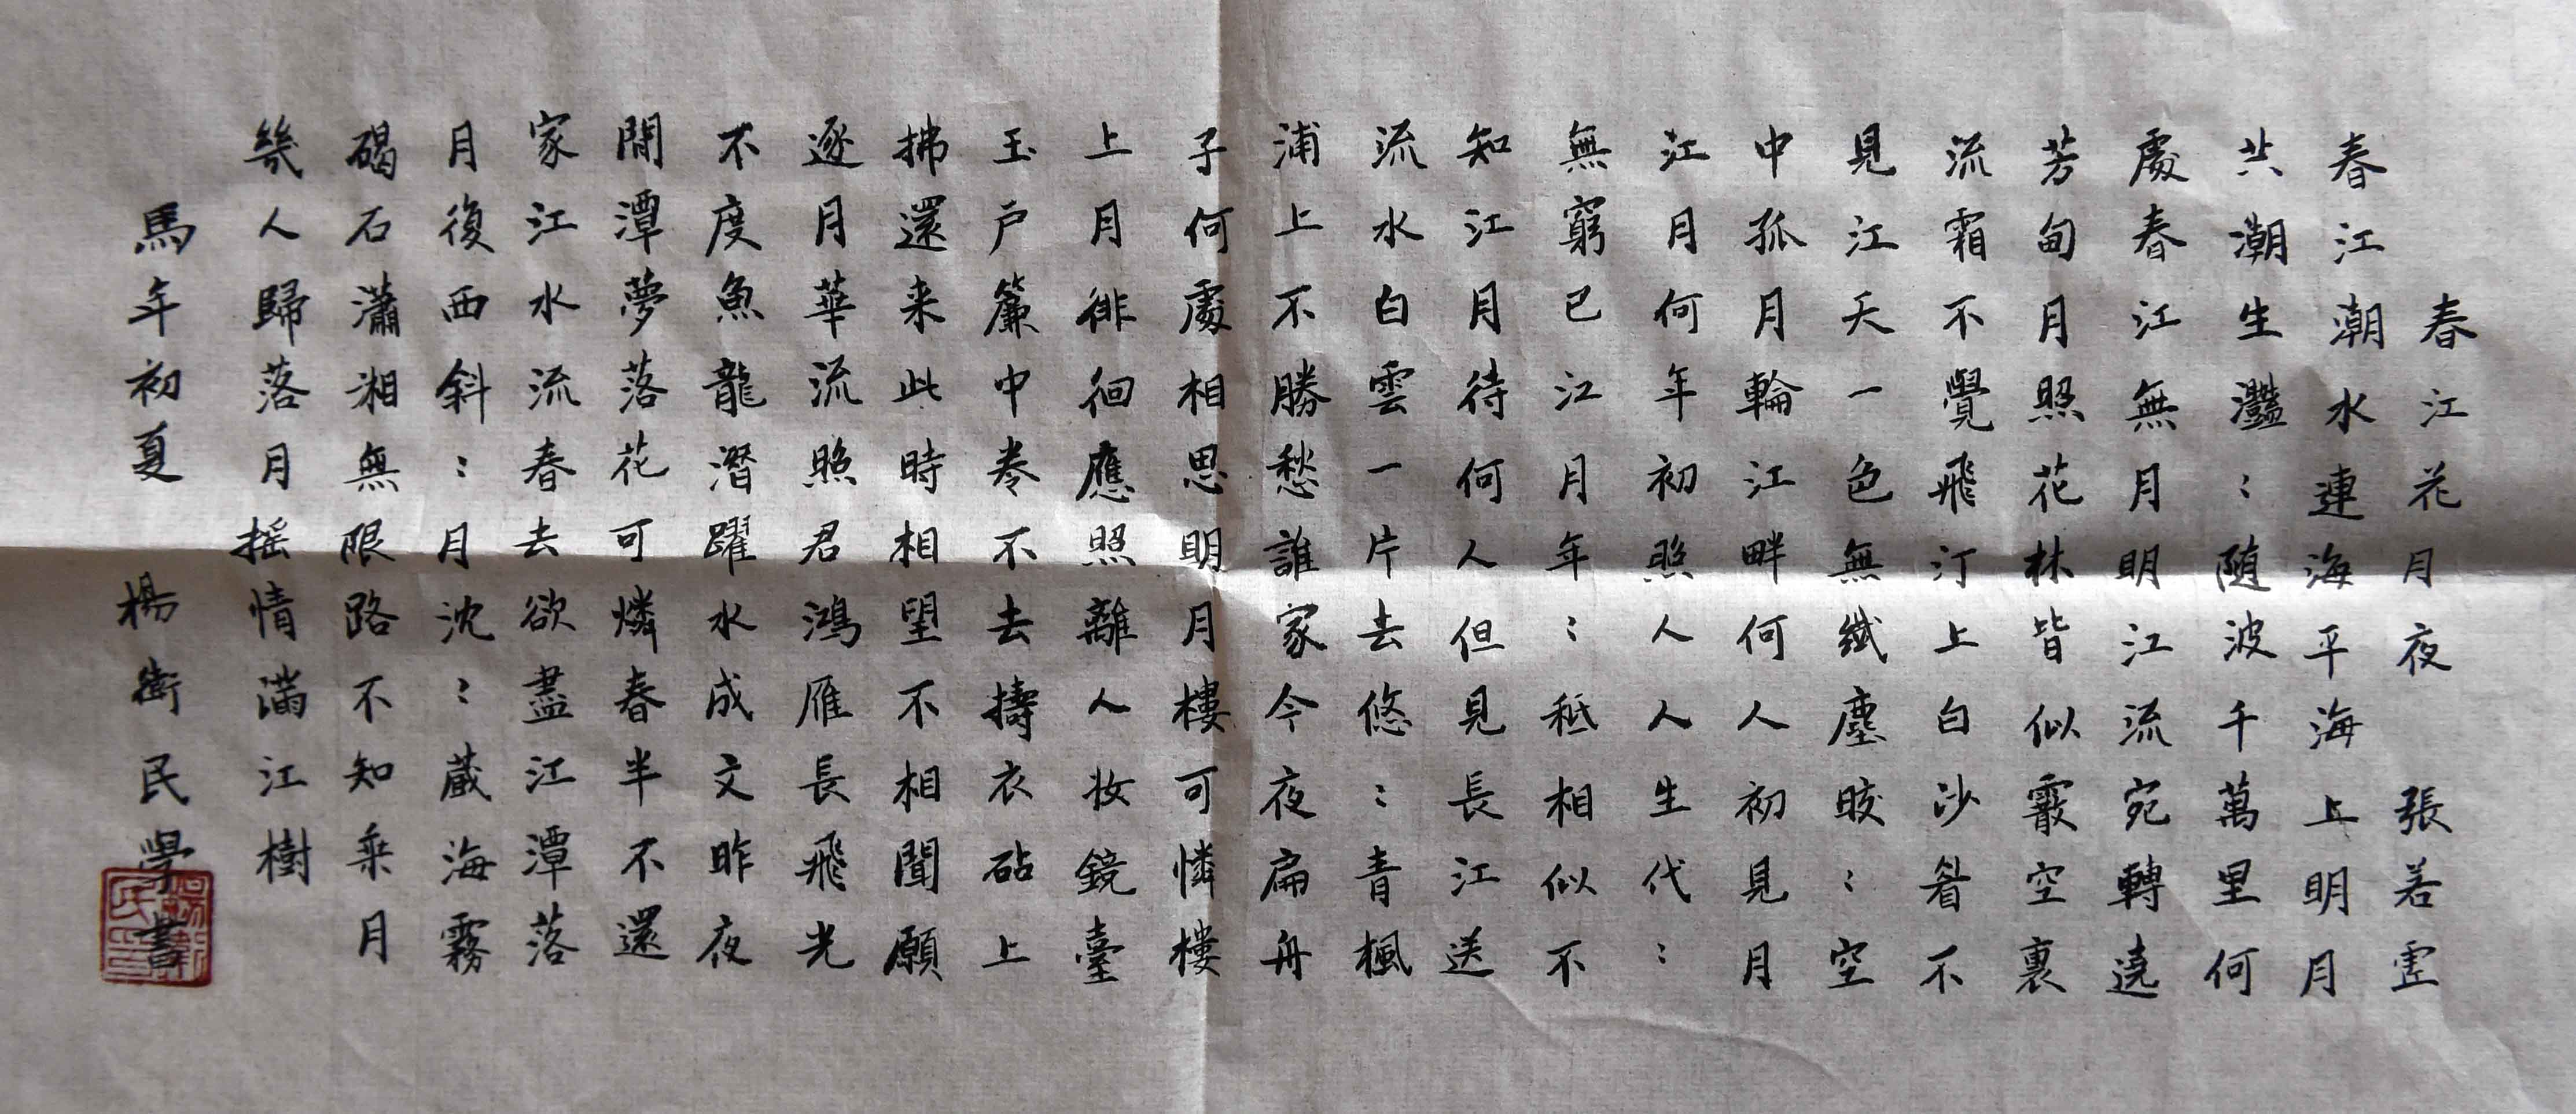 春江花月夜 張若虛
春江潮水連海平海上明月
共潮生灩:随波千萬里何
處春江無月明江流宛轉遶
芳甸月照花林皆似霰空裏
流霜不覺飛汀上白沙看不
見江天一色無纖塵皎:空
中孤月輪江畔何人初見月
江月何年初照人人生代:
無窮已江月年:秪相似不
知江月待何人但見長江送
流水白雲一片去悠:青楓
浦上不勝愁誰家今夜扁舟
子何處相思明月樓可憐樓
上月徘徊應照離人妝鏡臺
玉户簾中卷不去擣衣砧上
拂還来此時相望不相聞願
逐月華流照君鴻雁長飛光
不度魚龍潛躍水成文昨夜
閒潭夢落花可憐春半不還
家江水流春去欲盡江潭落
月復西斜:月沈:藏海霧
碣石瀟湘無限路不知乘月
幾人歸落月摇情滿江樹
馬年初夏 楊衛民學書